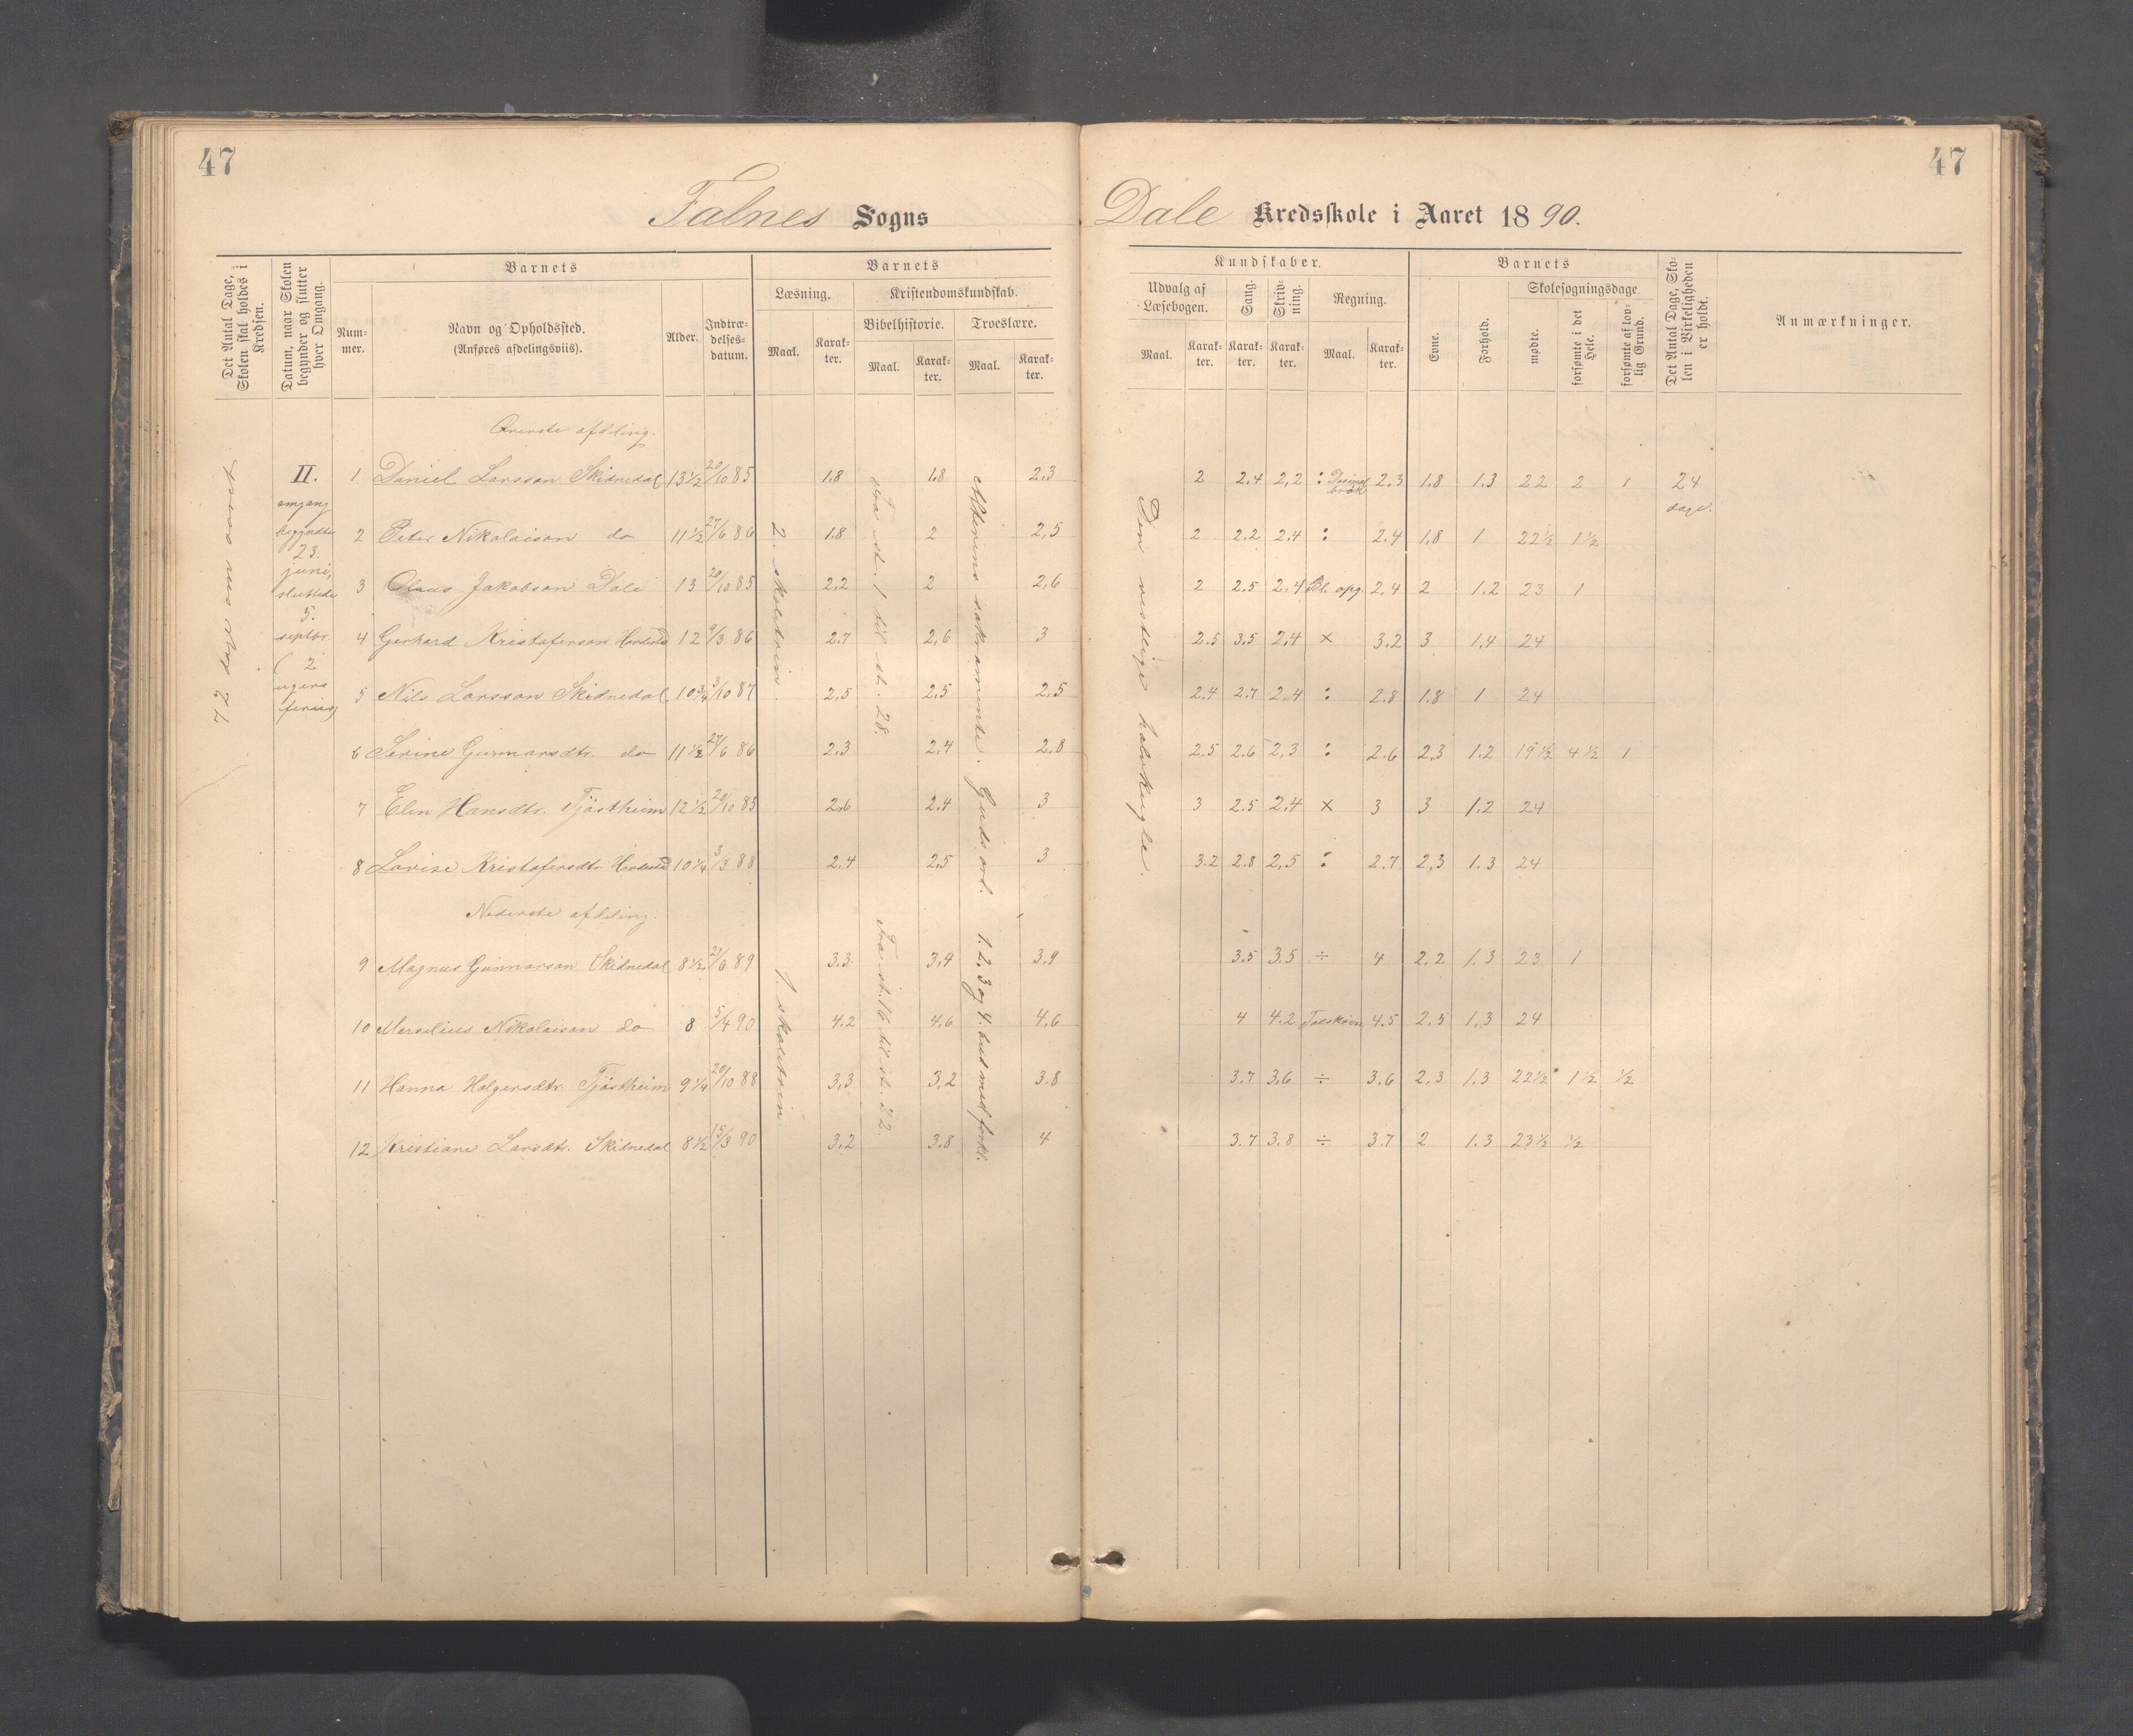 47
47
Falnes Sogns
Dale Kredsskole i Aaret 1890.
Det Antal Dage, Skolen skal holdes i Kredsen.
Datum, naar Skolen begynder og slutter hver Omgang.
Barnets
Num-mer.
Navn og Opholdssted.
(Anføres afdelingsviis).
Alder.
Indtræ-delses-datum.
Barnets
Læsning.
Maal.
Karak-ter.
Kristendomskundskab.
Bibelhistorie.
Maal.
Karak-ter.
Troeslære.
Maal.
Karak-ter.
Kundskaber.
Udvalg af Læsebogen.
Maal.
Karak-ter.
Sang.
Karak-ter.
Skriv-ning.
Karak-ter.
Regning.
Maal.
Karak-ter.
Barnets
Evne.
Forhold.
Skolesøgningsdage.
mødte.
forsømte i det Hele.
forsømte af lov-lig Grund.
Det Antal Dage, Sko-len i Virkeligheden er holdt.
Anmærkninger.
Øverste afdeling.
II. omgang begyndte 23. juni, sluttede 5. septbr. (2 ugers ferie)
2. skoletrin.
Fra st. 1 til st. 28.
Alterens sakramente. Guds ord.
Den vestlige halvkugle.
1 Daniel Larsson Skidnedal 13½ 20/10 85 1.8 1.8 2.3 2 2.4 2,2 : Desimal brøk 2.3 1.8 1.3 22 2 1 24 dage.
2 Peter Nikolaison do 11½ 27/6 86 1.8 2 2,5 2 2.2 2.4 : 2.4 1.8 1 22½ 1½
3 Olaus Jakobson Dale 13 20/10 85 2,2 2 2,6 2 2.5 2.4 Bl. opg. 2,4 2 1.2 23 1
4 Gerhard Kristoferson 12 9/3 86 2.7 2,6 3 2.5 3.5 2,4 × 3.2 3 1.4 24
5 Nils Larsson Skidnedal 10¾ 3/10 87 2,5 2.5 2,5 2.4 2.7 2,4 : 2.8 1.8 1 24
6 Serine Gunnarsdtr. do 11½ 27/6 86 2.3 2,4 2,8 2.5 2.6 2,3 : 2.6 2,3 1.2 19½ 4½ 1
7 Elen Hansdtr. Tjøstheim 12½ 20/10 85 2,6 2.4 3 3 2.5 2,4 × 3 3 1.2 24
8 Lovise Kristofersdtr. 10¼ 3/3 88 2.4 2,5 3 3.2 2.8 2,5 : 2.7 2,3 1.3 24
Nederste afdeling.
1. skoletrin.
Fra st. 16 til st. 22.
1. 2. 3 og 4. bud med forkl.
9 Magnus Gunnarson Skidnedal 8½ 21/6 89 3.3 3,4 3,9 3.5 3.5 ÷ 4 2,2 1.3 23 1
10 Merselius Nikolaison do 8 5/4 90 4.2 4,6 4,6 4 4.2 Talskrivn. 4.5 2,5 1.3 24
11 Hanna Holgersdtr. Tjøstheim 9¼ 20/10 88 3,3 3,2 3.8 3.7 3,6 ÷ 3.6 2,3 1.3 22½ 1½ ½
12 Kristiane Larsdtr. Skidnedal 8½ 15/3 90 3,2 3.8 4 3.7 3.8 ÷ 3.7 2 1.3 23½ ½